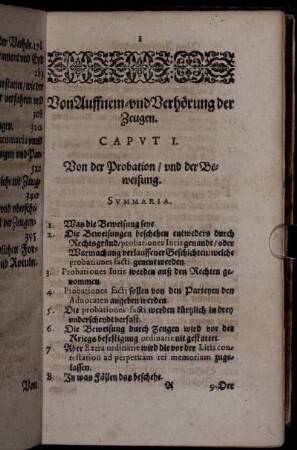 der Verhör. 178
283
verfahren vnd
308
ugen. 320
355
Von
1
Von Auffnem/ vnd Verhörung der
Zeugen.
CAPVT I.
Von der Probation / vnd der Be-
weisung.
SVMMARIA.
1. Was die Beweisung seye.
2. Die Beweisungen beschehen entweders durch
Rechtsgründ/ probationes Iuris genandt/ oder
Warmachung verlauffener Beschichten/ welche
probationes facti genent werden.
3. Probationes Iuris werden auß den Rechten ge-
nommen.
4. Probationes facti sollen von den Parteyen den
Aduocaten angeben werden.
5. Die probationes facti werden kürtzlich in drey
vnderscheydt verfaßt.
6. Die Beweisung durch Zeugen wird vor der
Kriegs befestigung ordinariè nit gestattet.
7. Aber Extra ordinariè wird die vor der Litis con-
testation ad perpetuam rei memoriam zuge-
lassen.
8. In was Fällen das beschehe.
A 9. Der